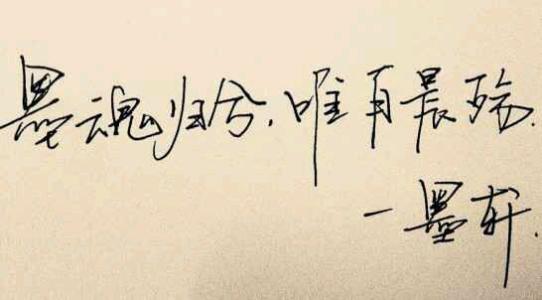 墨魂归兮,唯有晨殇.
一墨轩.